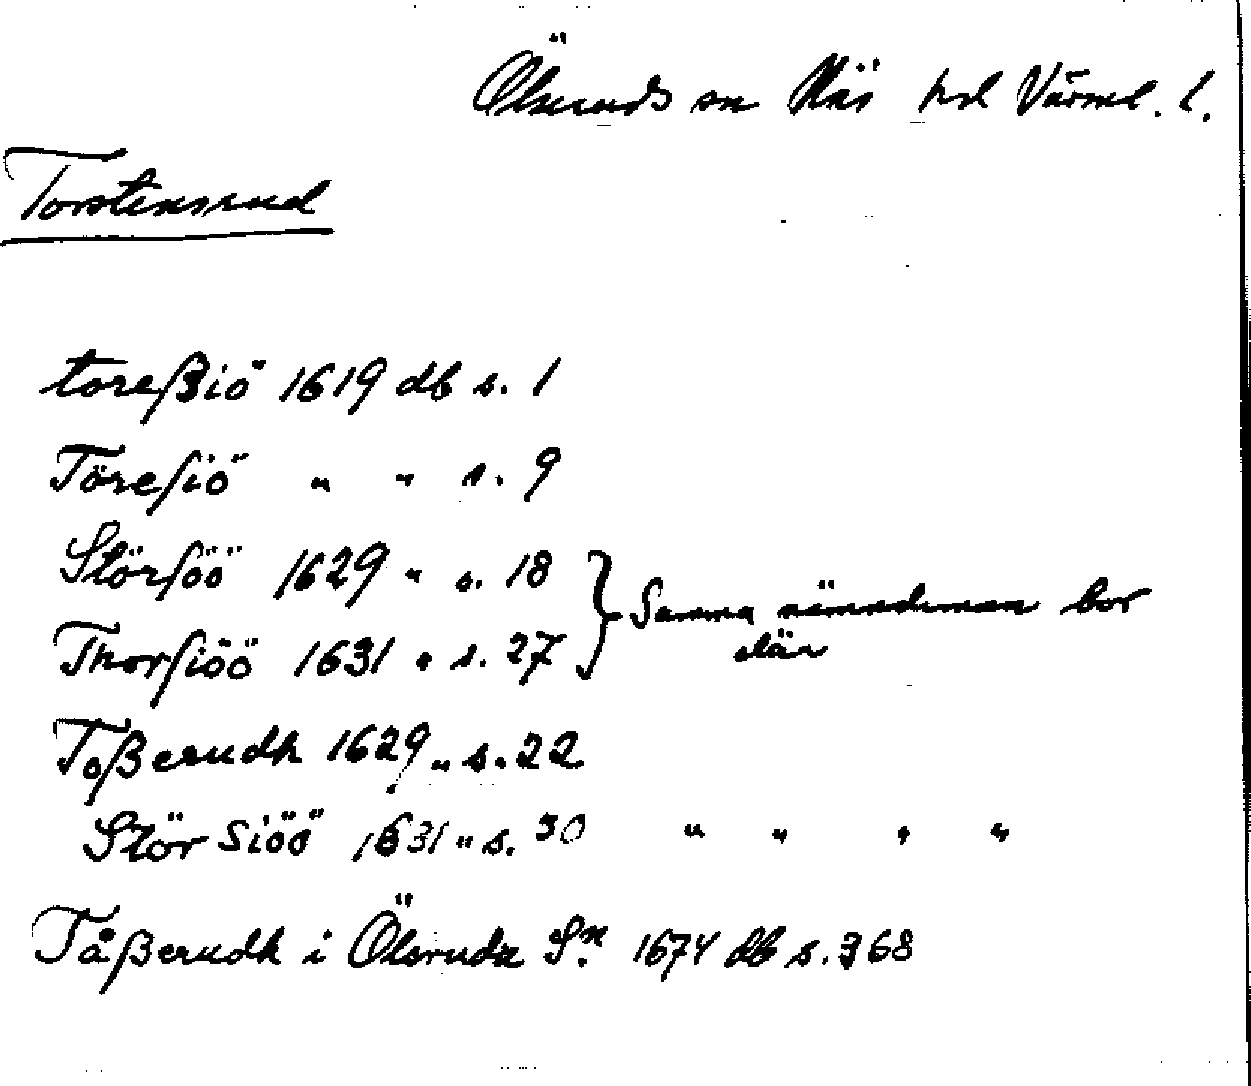 Ölseruds sn Näs hd Värml. l.
Torstensrud
toreßiö 1619 db s. 1
Töresiö " " s. 9
Störsöö 1629 " s. 18
Thorsiöö 1631 " s. 27 } Samma nämndeman bor
där
Toßerudh 1629 " s. 22
Stör Siöö 1631 " s. 30 " " " "
Tåßerudh i Ölsruda Sn. 1674 db s. 368